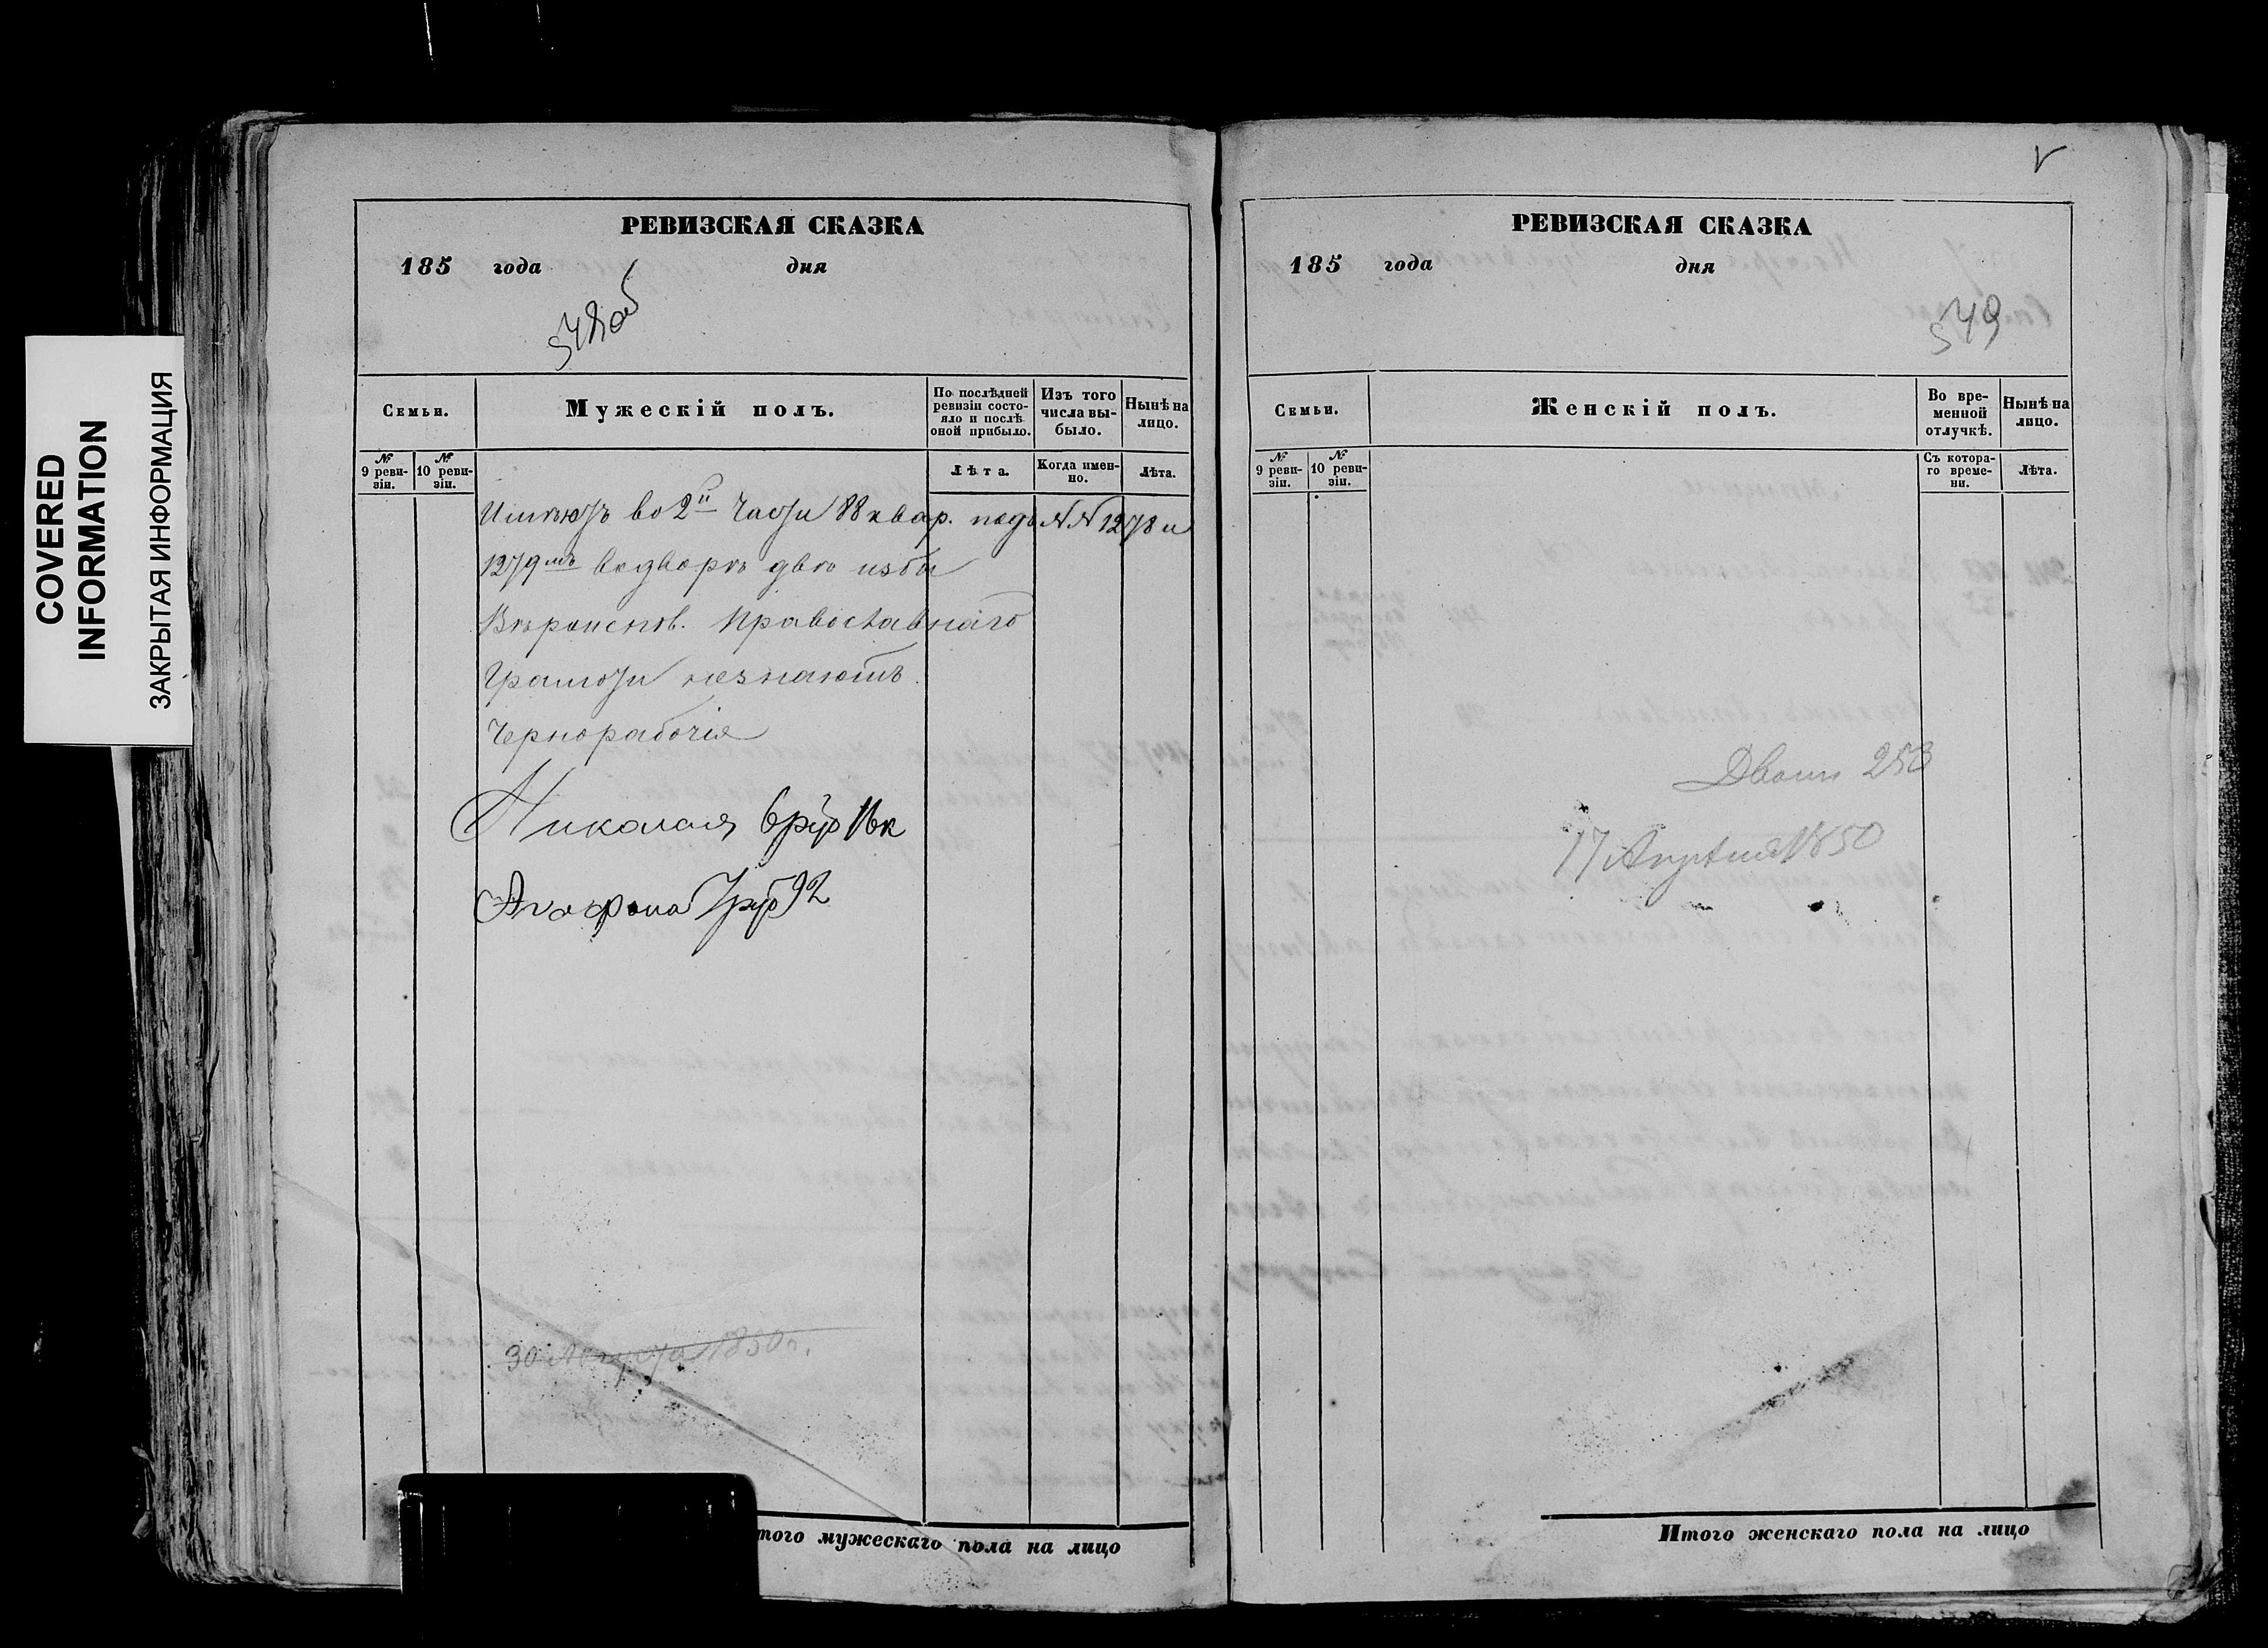 COVERED
INFORMATION
ЗАКРЫТАЯ ИНФОРМАЦИЯ
РЕВИЗСКАЯ СКАЗКА
185 года дня
548об
Семьи.
Мужескій полъ.
По послѣдней
ревизіи состо-
яло и послѣ
оной прибыло.
Изъ того
числа вы-
было.
Нынѣ на
лицо.
№
9 реви-
зіи.
№
10 реви-
зіи.
Лѣта.
Когда имен-
но.
Лѣта.
Имѣютъ во 2й Части 88 квар. подъ №№ 1278 и
1279мъ водворѣ двѣ избы
Вѣроиспов. Православнаго
Грамоты незнаютъ.
Чернорабочія
Николая
30 Августа 1850г.
того мужескаго пола на лицо
РЕВИЗСКАЯ СКАЗКА
185 года дня
549
Семьи.
Женскій полъ.
Во вре-
менной
отлучкѣ.
Нынѣ на
лицо.
№
9 реви-
зіи.
№
10 реви-
зіи.
Съ котора-
го време-
ни.
Лѣта.
253
17 Апрѣля 1850
Итого женскаго пола на лицо